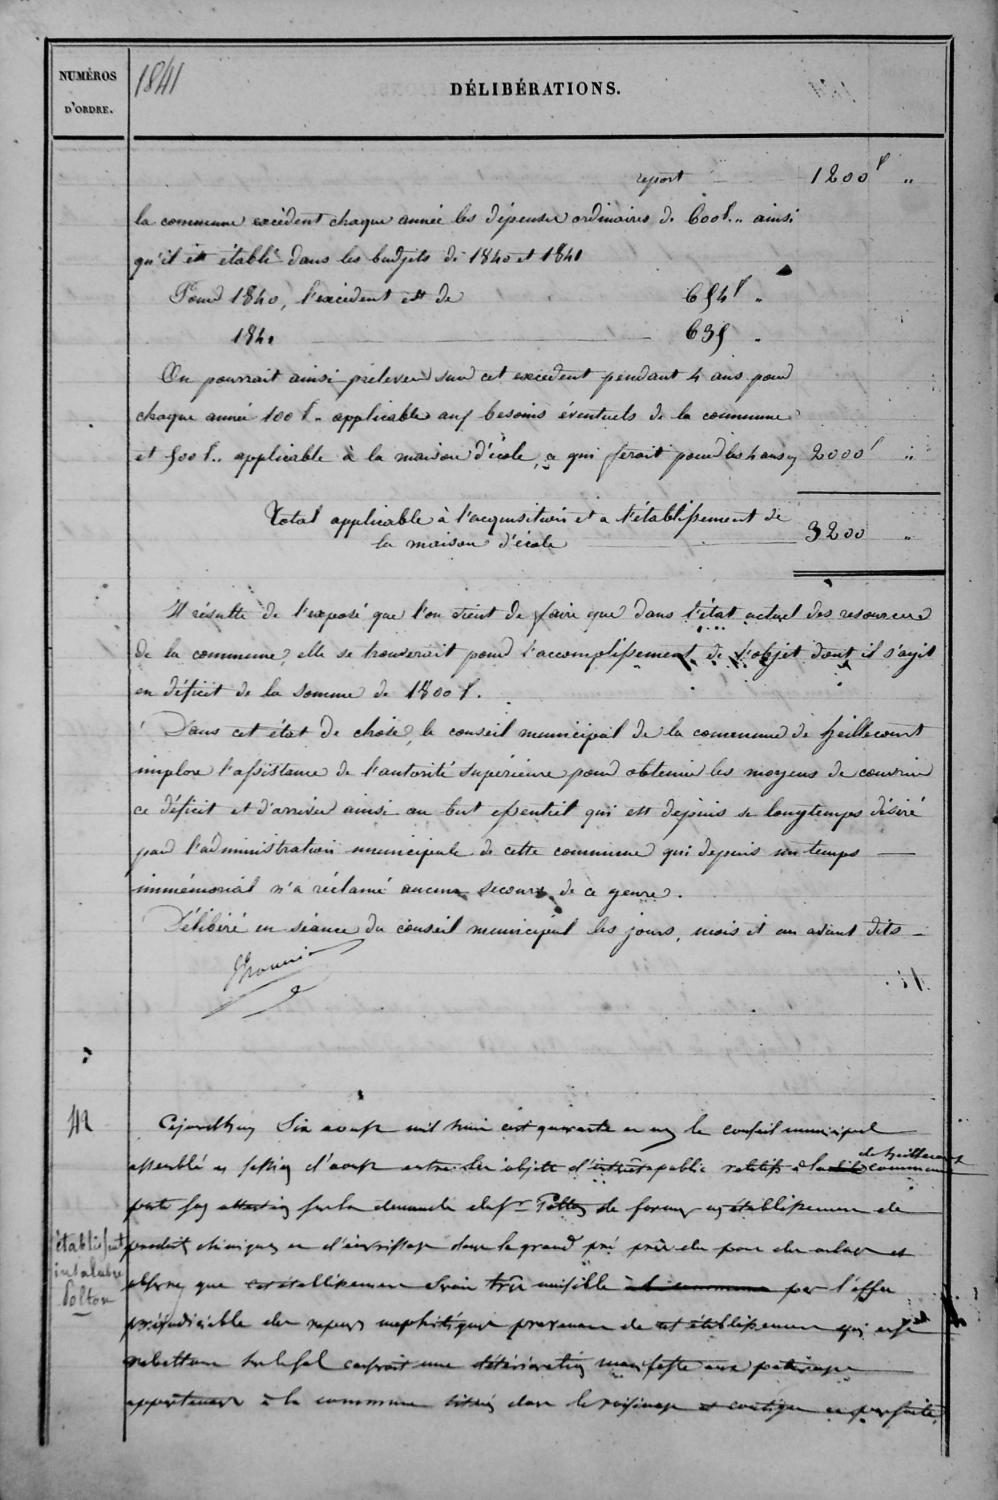 NUMÉROS
D'ORDRE.
1841
DÉLIBÉRATIONS.
report 1200 f "
la commune excèdent chaque année les dépenses ordinaires de 600 f.. ainsi
qu'il est établi dans les budjets de 1840 et 1841
Pour 1840, l'excédent est de 654 f "
1841 635 "
On pourrait ainsi prélever sur cet excédent pendant 4 ans pour
chaque année 100 f.. applicable aux besoins éventuels de la commune
et 500 f.. applicable à la maison d'école, ce qui ferait pour les 4 ans 2000 f "
Total applicable à l'acquisition et a l'établissement de
la maison d'école 3200 "
Il résulte de l'exposé que l'on vient de faire que dans l'état actuel des resources
de la commune, elle se trouverait pour l'accomplissement de l'objet dont il s'agit
en déficit de la somme de 1800 f.
Dans cet état de chose, le conseil municipal de la commune de heillecourt
implore l'assistance de l'autorité supérieure pour obtenir les moyens de couvrir
ce déficit et d'arriver ainsi au but essentiel qui est depuis si longtemps désiré
par l'administration municipale de cette commune qui depuis un temps
immémorial n'a réclamé aucun secours de ce genre.
Délibéré en séance du conseil municipal les jours, mois et an avant dits
42
Cejourdhuy Six aoust mil huit cent quarante en un le conseil municipal
assemblé en session d'aoust entre les objets d'intérêt public relatifs à la commune
de heillecourt
porte son attention sur la demande du Sr Polton de former un établissement de
Etablissement
insalubre
Polton
produits chimiques et d'équarrissage dans le grand pré près du pont de
observe que cet établissement serait très nuisible à la commune par l'effet
préjudiciable des vapeurs mephitiques provenant de cet établissement qui en se
rabattant sur le sol causerait une détérioration manifeste aux paturages
appartenant à la commune situés dans le voisinage et contigue